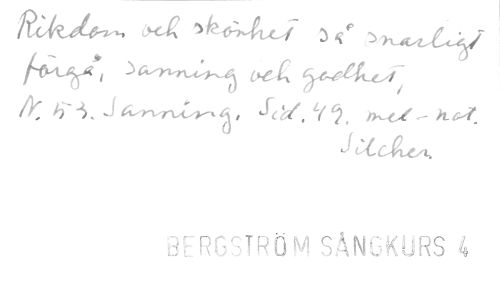 Rikdom och skönhet så snarligt
förgå, sanning och godhet,
N. 53. Sanning. Sid. 49. mel-not.
Silcher.
BERGSTRÖM SÅNGKURS 4